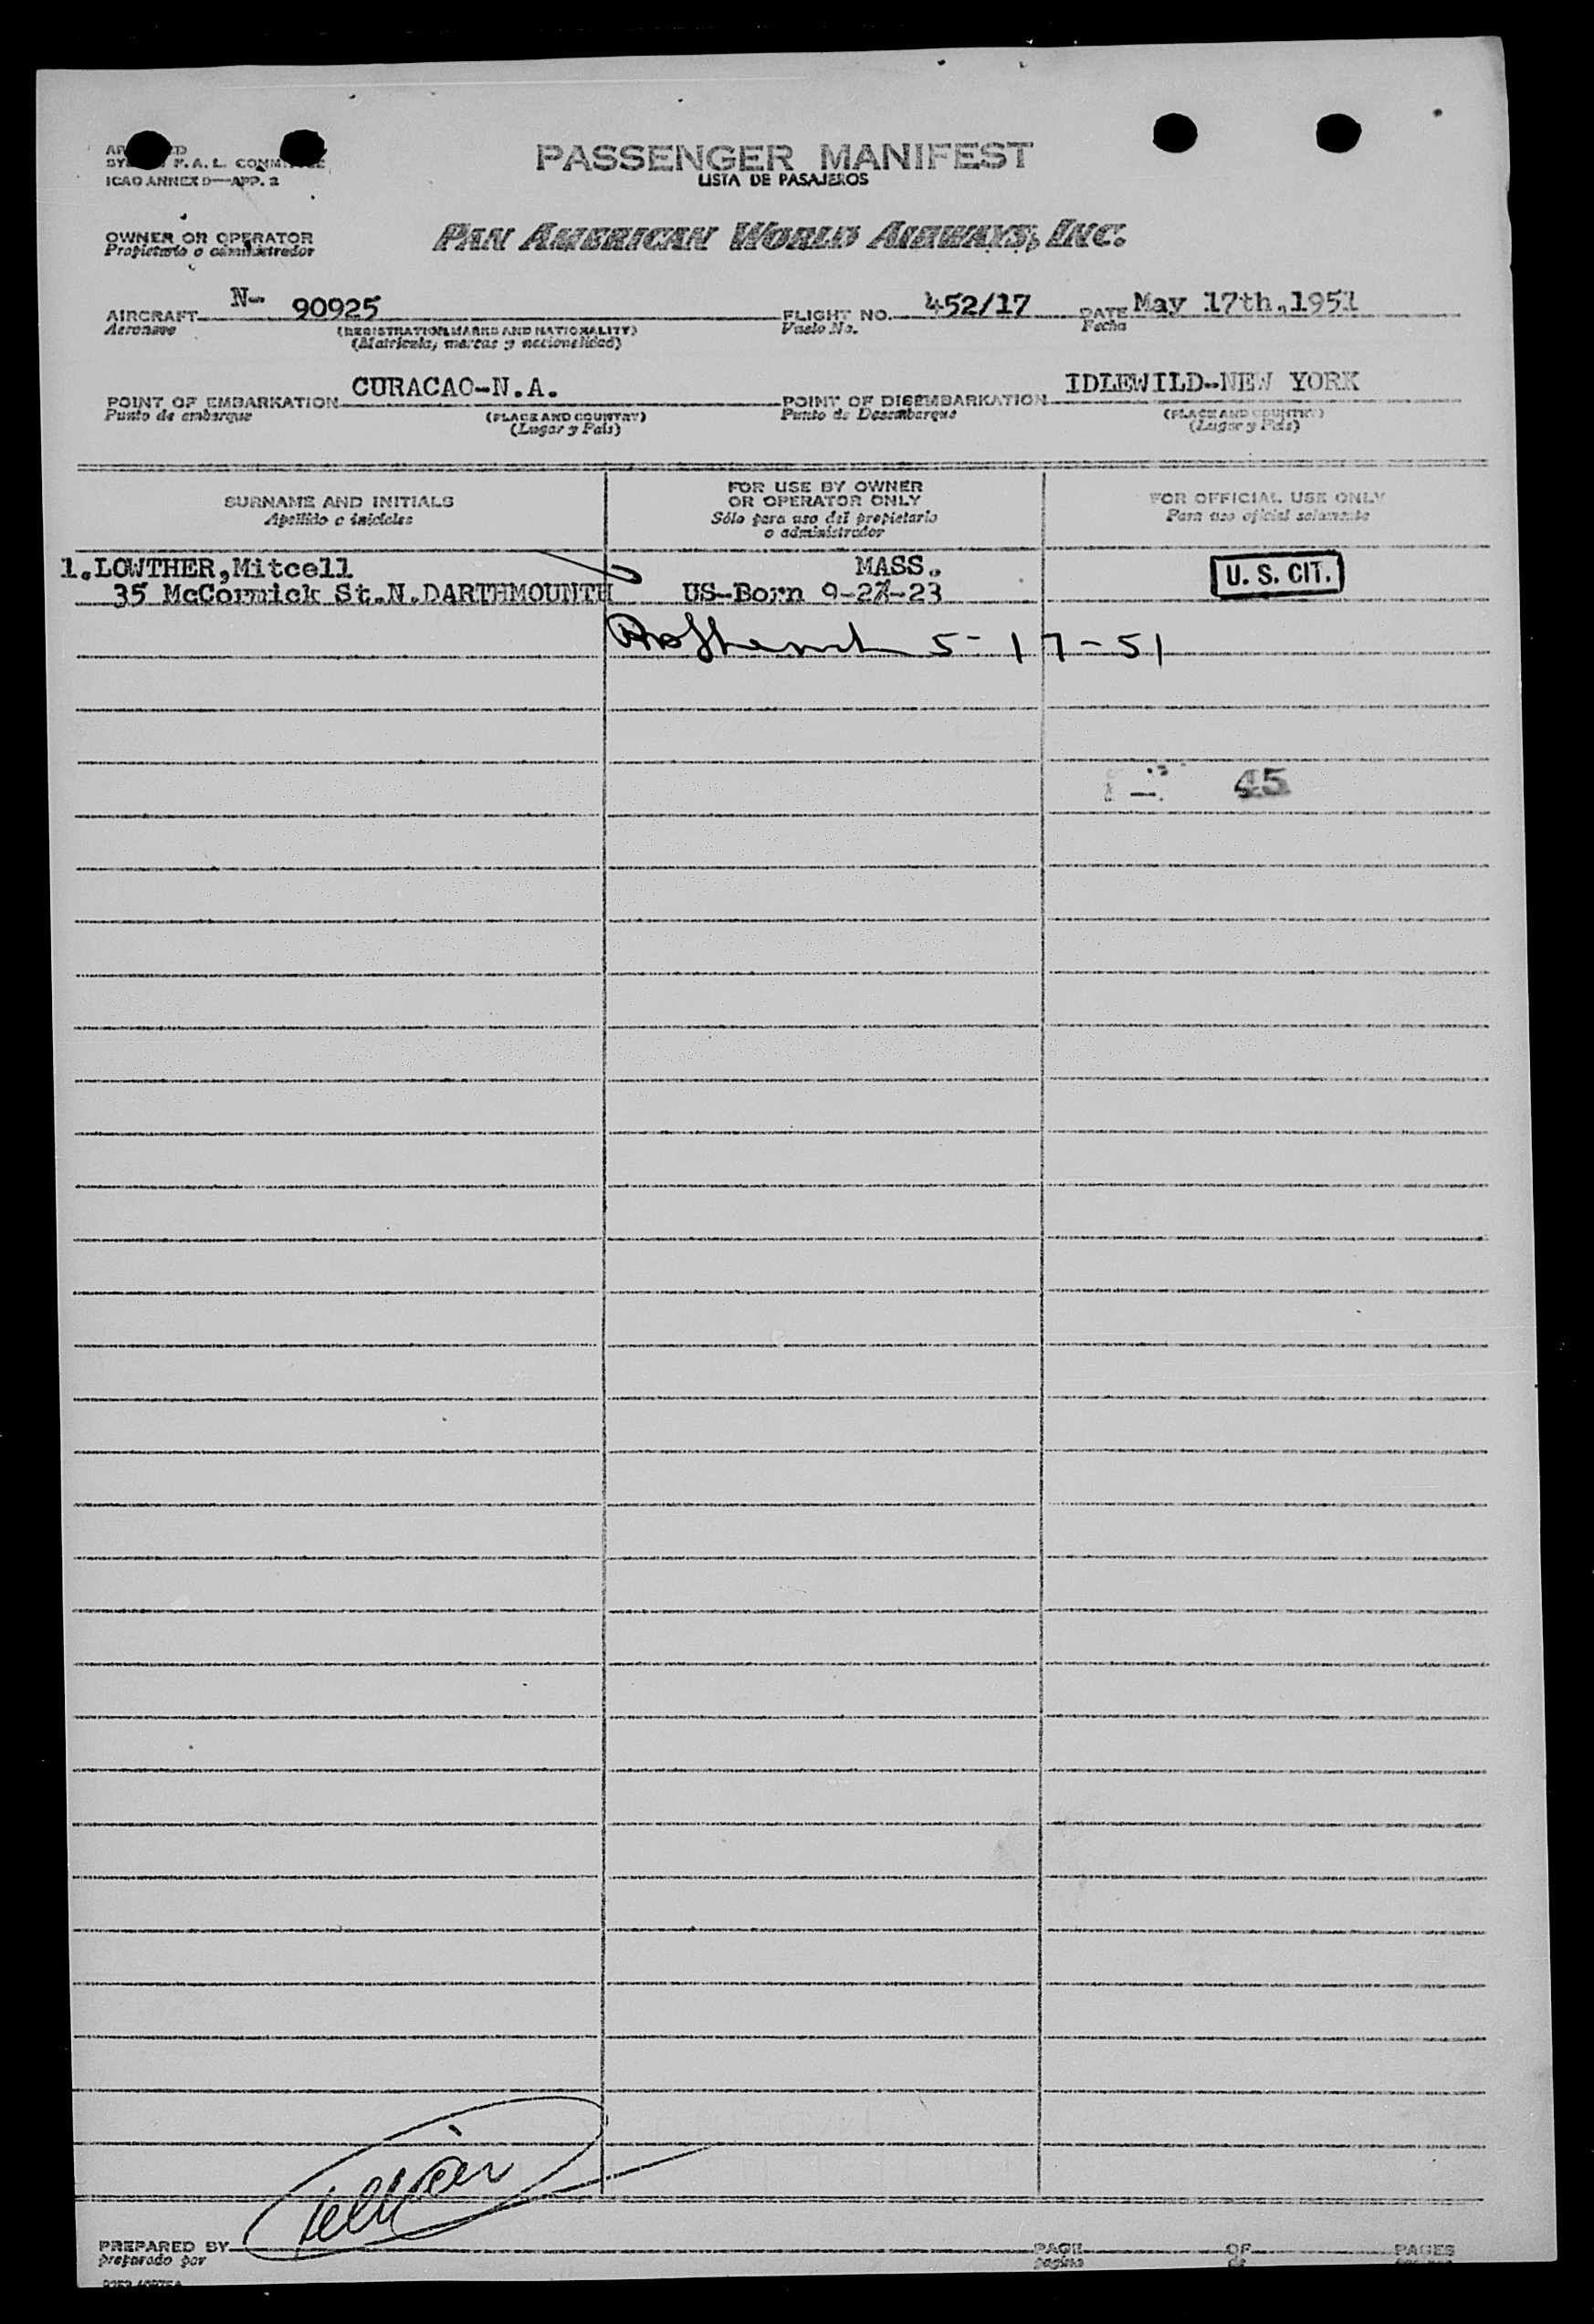 PASSENGER MANIFEST
LISTA DE PASAJEROS
F.A.L.
ICAO ANNEX 9—APP. 2
OWNER OR OPERATOR
Propietario o administrador
PAN AMERICAN WORLD AIRWAYS, INC.
AIRCRAFT N- 90925 FLIGHT NO. 452/17 DATE May 17th.1951
Aeronave (REGISTRATION MARKS AND NATIONALITY) Vuelo No. Fecha
(Matricula, marcas y nacionalidad)
POINT OF EMBARKATION CURACAO-N.A. POINT OF DISEMBARKATION IDLEWILD-NEW YORK
Punto de embarque (PLACE AND COUNTRY) Punto de Desembarque (PLACE AND COUNTRY)
(Lugar y País) (Lugar y País)
SURNAME AND INITIALS FOR USE BY OWNER OR OPERATOR ONLY FOR OFFICIAL USE ONLY
Apellido e iniciales Sólo para uso del propietario o administrador Para uso oficial solamente
1.LOWTHER,Mitcell MASS. U. S. CIT.
35 McCormick St.N.DARTHMOUNTH US-Born 9-23
5-17-51
45
PREPARED BY PAGE OF PAGES
preparado por pagina de